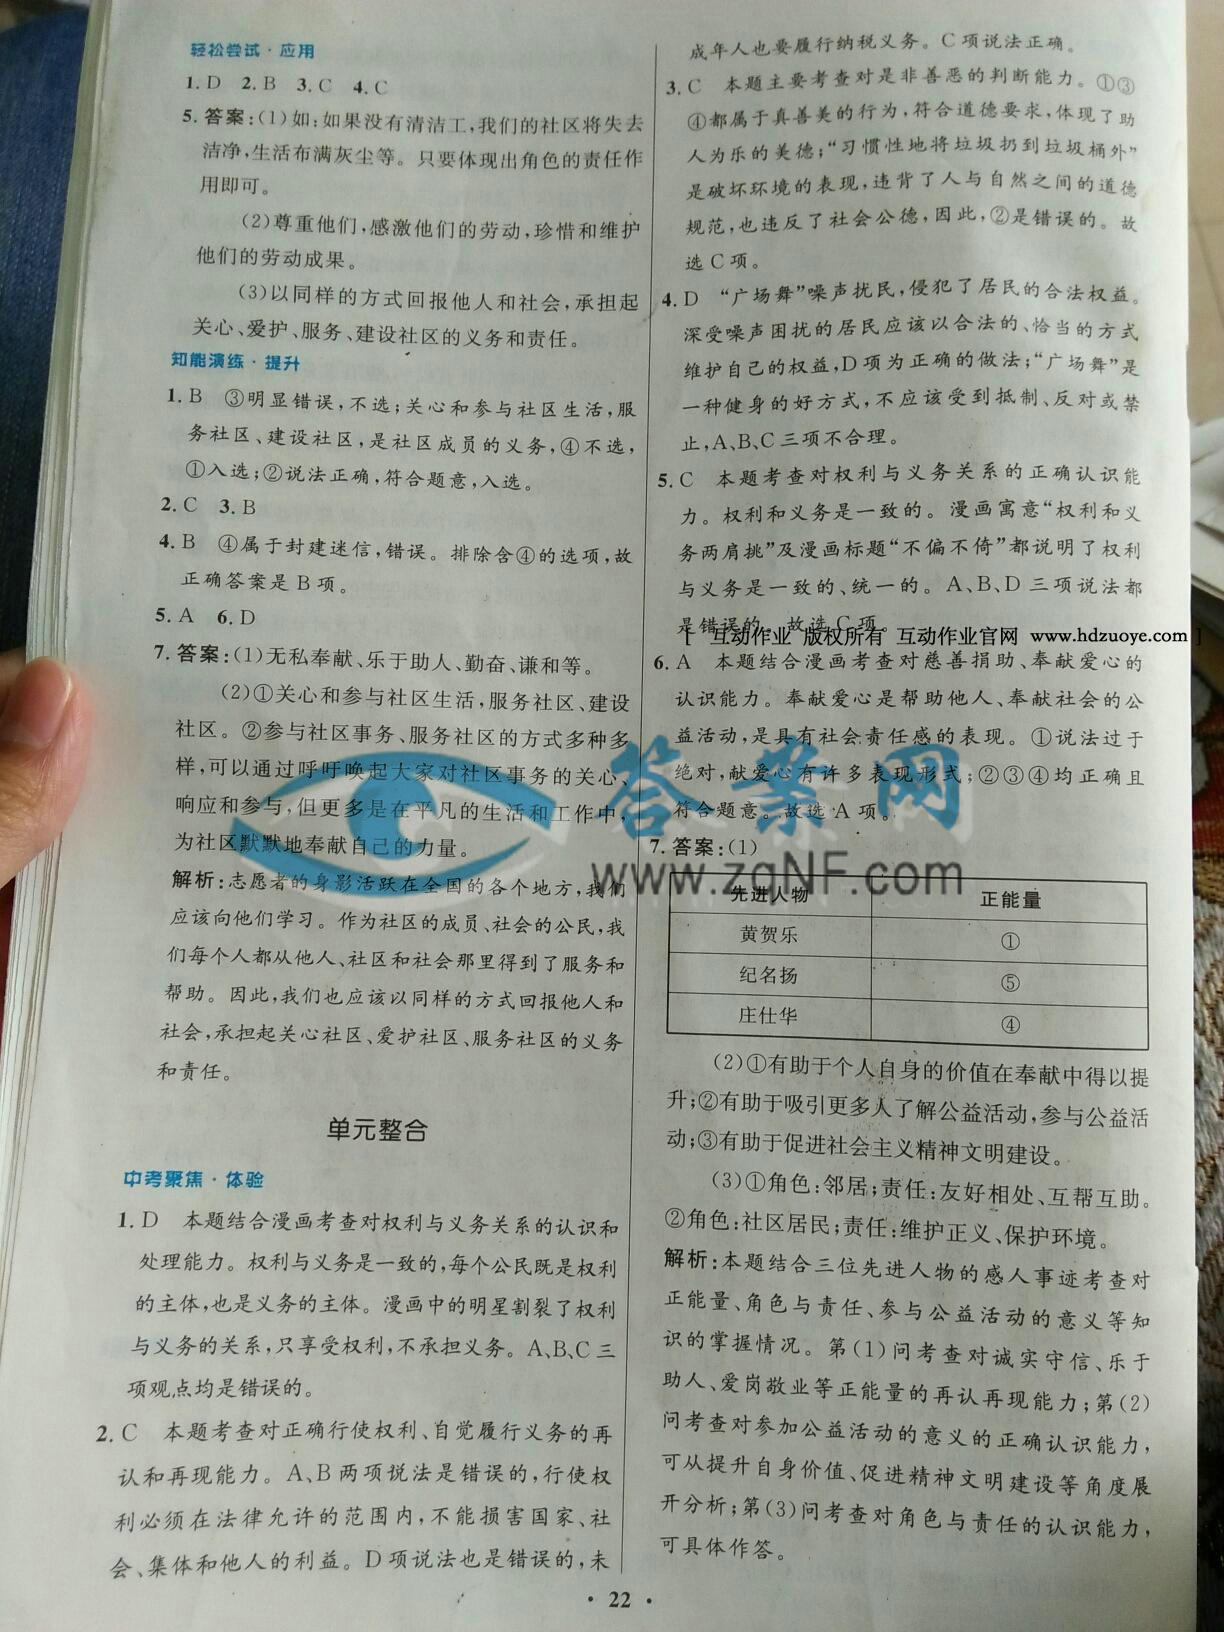 轻松尝试·应用
1. D  2. B  3. C  4. C
5. 答案:(1)如:如果没有清洁工,我们的社区将失去
洁净,生活布满灰尘等。只要体现出角色的责任作
用即可。
(2)尊重他们,感激他们的劳动,珍惜和维护
他们的劳动成果。
(3)以同样的方式回报他人和社会,承担起
关心、爱护、服务、建设社区的义务和责任。
知能演练·提升
1. B  ③明显错误,不选;关心和参与社区生活,服
务社区、建设社区,是社区成员的义务,④不选,
①入选;②说法正确,符合题意,入选。
2. C  3. B
4. B  ④属于封建迷信,错误。排除含④的选项,故
正确答案是 B 项。
5. A  6. D
7. 答案:(1)无私奉献、乐于助人、勤奋、谦和等。
(2)①关心和参与社区生活,服务社区、建设
社区。②参与社区事务、服务社区的方式多种多
样,可以通过呼吁唤起大家对社区事务的关心、
响应和参与,但更多是在平凡的生活和工作中,
为社区默默地奉献自己的力量。
解析:志愿者的身影活跃在全国的各个地方,我们
应该向他们学习。作为社区的成员、社会的公民,我
们每个人都从他人、社区和社会那里得到了服务和
帮助。因此,我们也应该以同样的方式回报他人和
社会,承担起关心社区、爱护社区、服务社区的义务
和责任。
单元整合
中考聚焦·体验
1. D  本题结合漫画考查对权利与义务关系的认识和
处理能力。权利与义务是一致的,每个公民既是权利
的主体,也是义务的主体。漫画中的明星割裂了权利
与义务的关系,只享受权利,不承担义务。A、B、C 三
项观点均是错误的。
2. C  本题考查对正确行使权利、自觉履行义务的再
认和再现能力。A、B 两项说法是错误的,行使权
利必须在法律允许的范围内,不能损害国家、社
会、集体和他人的利益。D 项说法也是错误的,未
成年人也要履行纳税义务。C 项说法正确。
3. C  本题主要考查对是非善恶的判断能力。①③
④都属于真善美的行为,符合道德要求,体现了助
人为乐的美德;“习惯性地将垃圾扔到垃圾桶外”
是破坏环境的表现,违背了人与自然之间的道德
规范,也违反了社会公德,因此,②是错误的。故
选 C 项。
4. D  “广场舞”噪声扰民,侵犯了居民的合法权益。
深受噪声困扰的居民应该以合法的、恰当的方式
维护自己的权益,D 项为正确的做法;“广场舞”是
一种健身的好方式,不应该受到抵制、反对或禁
止,A、B、C 三项不合理。
5. C  本题考查对权利与义务关系的正确认识能
力。权利和义务是一致的。漫画寓意“权利和义
务两肩挑”及漫画标题“不偏不倚”都说明了权利
与义务是一致的、统一的。A、B、D 三项说法都
是错误的。故选 C 项。
[ 互动作业 版权所有 互动作业官网 www.hdzuoye.com ]
6. A  本题结合漫画考查对慈善捐助、奉献爱心的
认识能力。奉献爱心是帮助他人、奉献社会的公
益活动,是具有社会责任感的表现。①说法过于
绝对,献爱心有许多表现形式;②③④均正确且
符合题意。故选 A 项。
答案网
www.zqNF.com
7. 答案:(1)
先进人物  正能量
黄贺乐  ①
纪名扬  ⑤
庄仕华  ④
(2)①有助于个人自身的价值在奉献中得以提
升;②有助于吸引更多人了解公益活动,参与公益活
动;③有助于促进社会主义精神文明建设。
(3)①角色:邻居;责任:友好相处、互帮互助。
②角色:社区居民;责任:维护正义、保护环境。
解析:本题结合三位先进人物的感人事迹考查对
正能量、角色与责任、参与公益活动的意义等知
识的掌握情况。第(1)问考查对诚实守信、乐于
助人、爱岗敬业等正能量的再认再现能力;第(2)
问考查对参加公益活动的意义的正确认识能力,
可从提升自身价值、促进精神文明建设等角度展
开分析;第(3)问考查对角色与责任的认识能力,
可具体作答。
· 22 ·